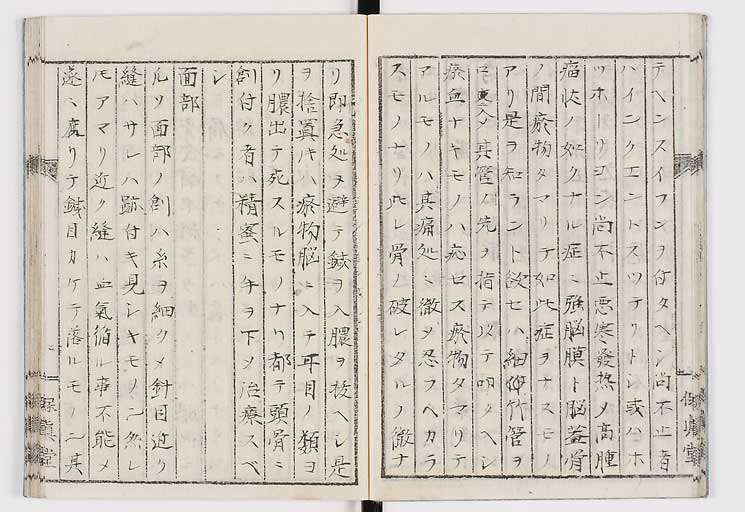 テヘンスイフンヲ付タヘシ尚不止者
ハインクエントスツテリトレ或ハホ
ツホートリエン尚不止悪寒發熱ノ高腫
痛[]ノ如クナル症ニ強脳膜ト脳蓋骨
ノ間瘀物タマリテ如此症ヲナスモノ
アリ是ヲ知ラント欲セハ細仰竹管ヲ
其管ノ先ヲ指テ以テ叩クヘシ
瘀血ナキモノハ応セス瘀物タマリテ
アルモノハ其痛処ニ徹ヲ忍フヘカラ
スモノナリ此レ骨ノ破レタルノ徴ナ
リ即急処ヲ避テ鍼ヲ入膿ヲ抜ヘシ是
ヲ捨置キハ瘀物脳ニ入テ耳目ノ類ヨ
リ膿出テ死スルモノナリ都テ頭骨ニ
創付ク者ハ精蜜ニ手ヲ下メ治療スベ
シ
面部
ルツ面部ノ創ハ糸ヲ細クメ針目近ク
縫ハサレハ跡付キ見シキモノニ然レ
モアマリ近ク縫ハ血氣循ル事不能メ
遂ニ腐リテ鍼目カケテ落ルモノニ其
保真堂